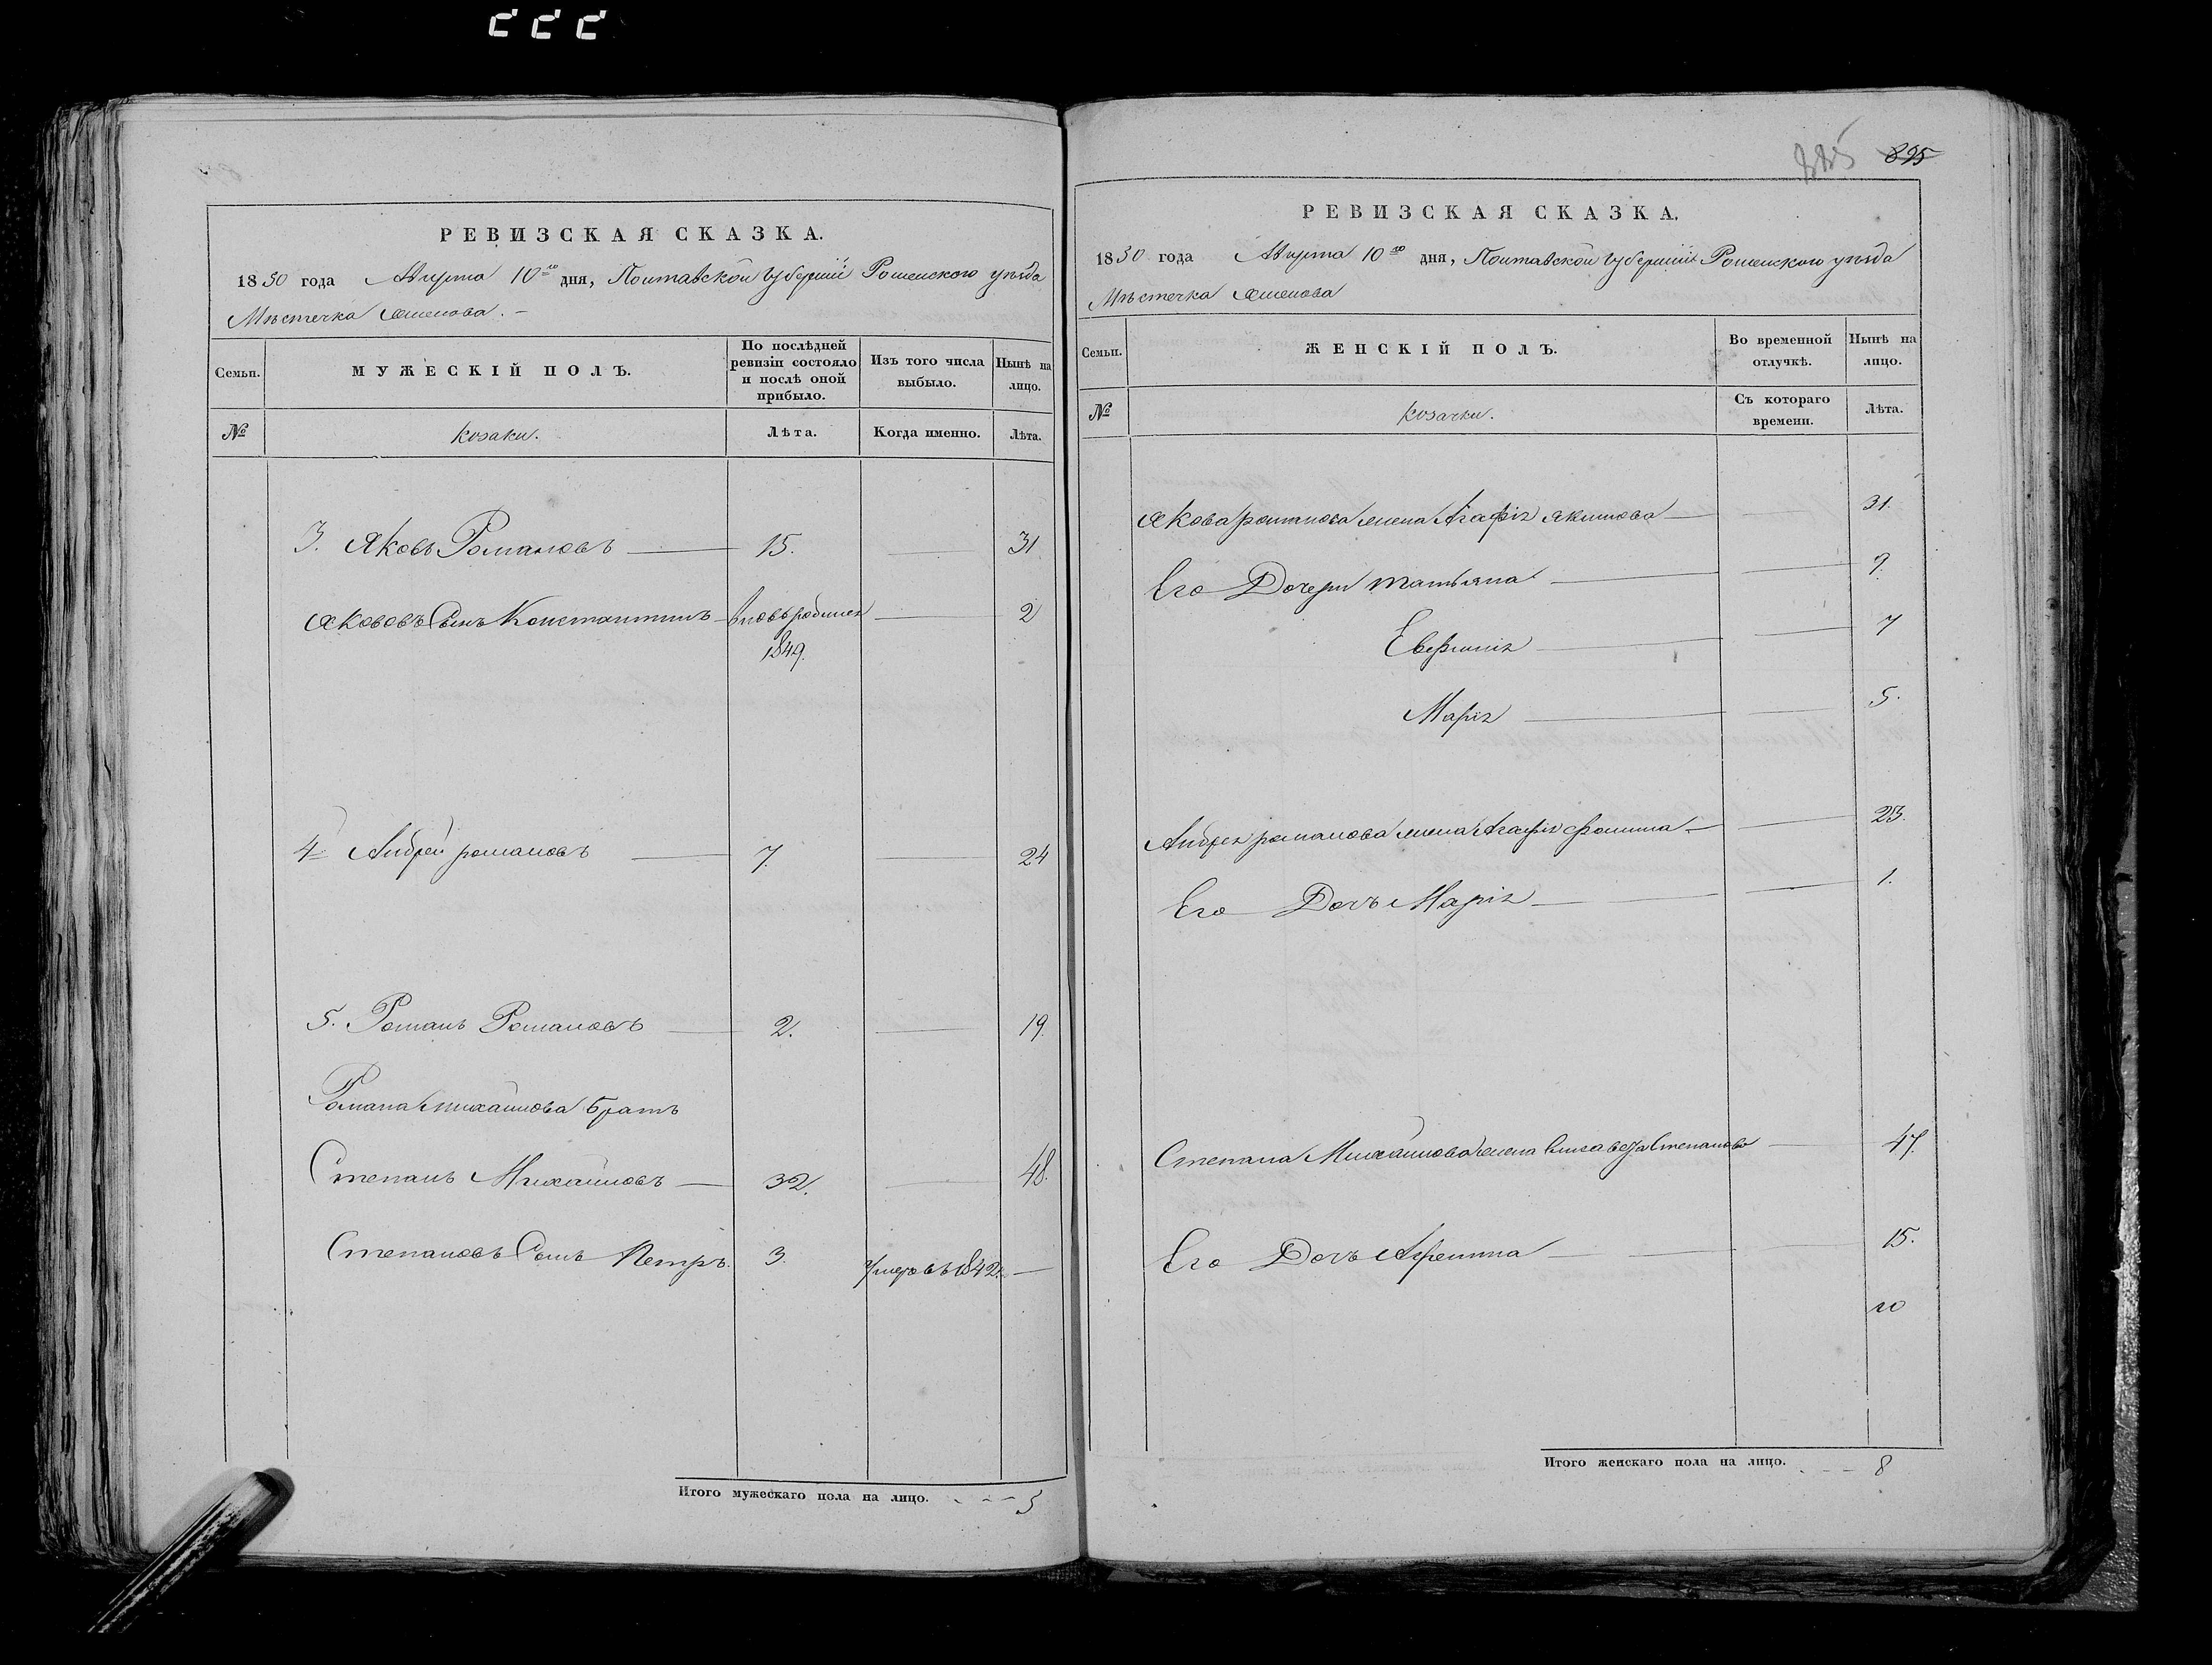 РЕВИЗСКАЯ СКАЗКА.
1850 года Марта 10го дня, Полтавской губерніи Роменского уѣзда
Мѣстечка
Семьи.
МУЖЕСКІЙ ПОЛЪ.
По послѣдней ревизіи состояло и послѣ оной прибыло.
Изъ того числа выбыло.
Нынѣ на лицо.
№
козаки.
Лѣта.
Когда именно.
Лѣта.
3. Яковъ Романовъ 15. 31
Якововъ Сынъ Константинъ вновьродился 2
1849.
4 Андрей романовъ 7. 24
5. Романъ Романовъ 2. 19.
Романа михайлова братъ
Степанъ Михайловъ 32. 48.
Степановъ Сынъ Петръ. 3. умеръ въ 1842.
Итого мужескаго пола на лицо. 5
885 895
РЕВИЗСКАЯ СКАЗКА.
1850 года Марта 10го дня, Полтавской губерніи Роменского уѣзда
Мѣстечка
Семьи.
ЖЕНСКІЙ ПОЛЪ.
Во временной отлучкѣ.
Нынѣ на лицо.
№
козачки.
Съ котораго времени.
Лѣта.
Якова романова жена Агафія якимова 31.
Его Дочери татьяна 9.
Евфимія 7
Марія 5.
Андрея романова жена Агафія фомина 23.
Его Дочь Марія 1.
Степана Михайлова жена Елисавета Степанова 47.
Его Дочь 15.
Итого женскаго пола на лицо. 8